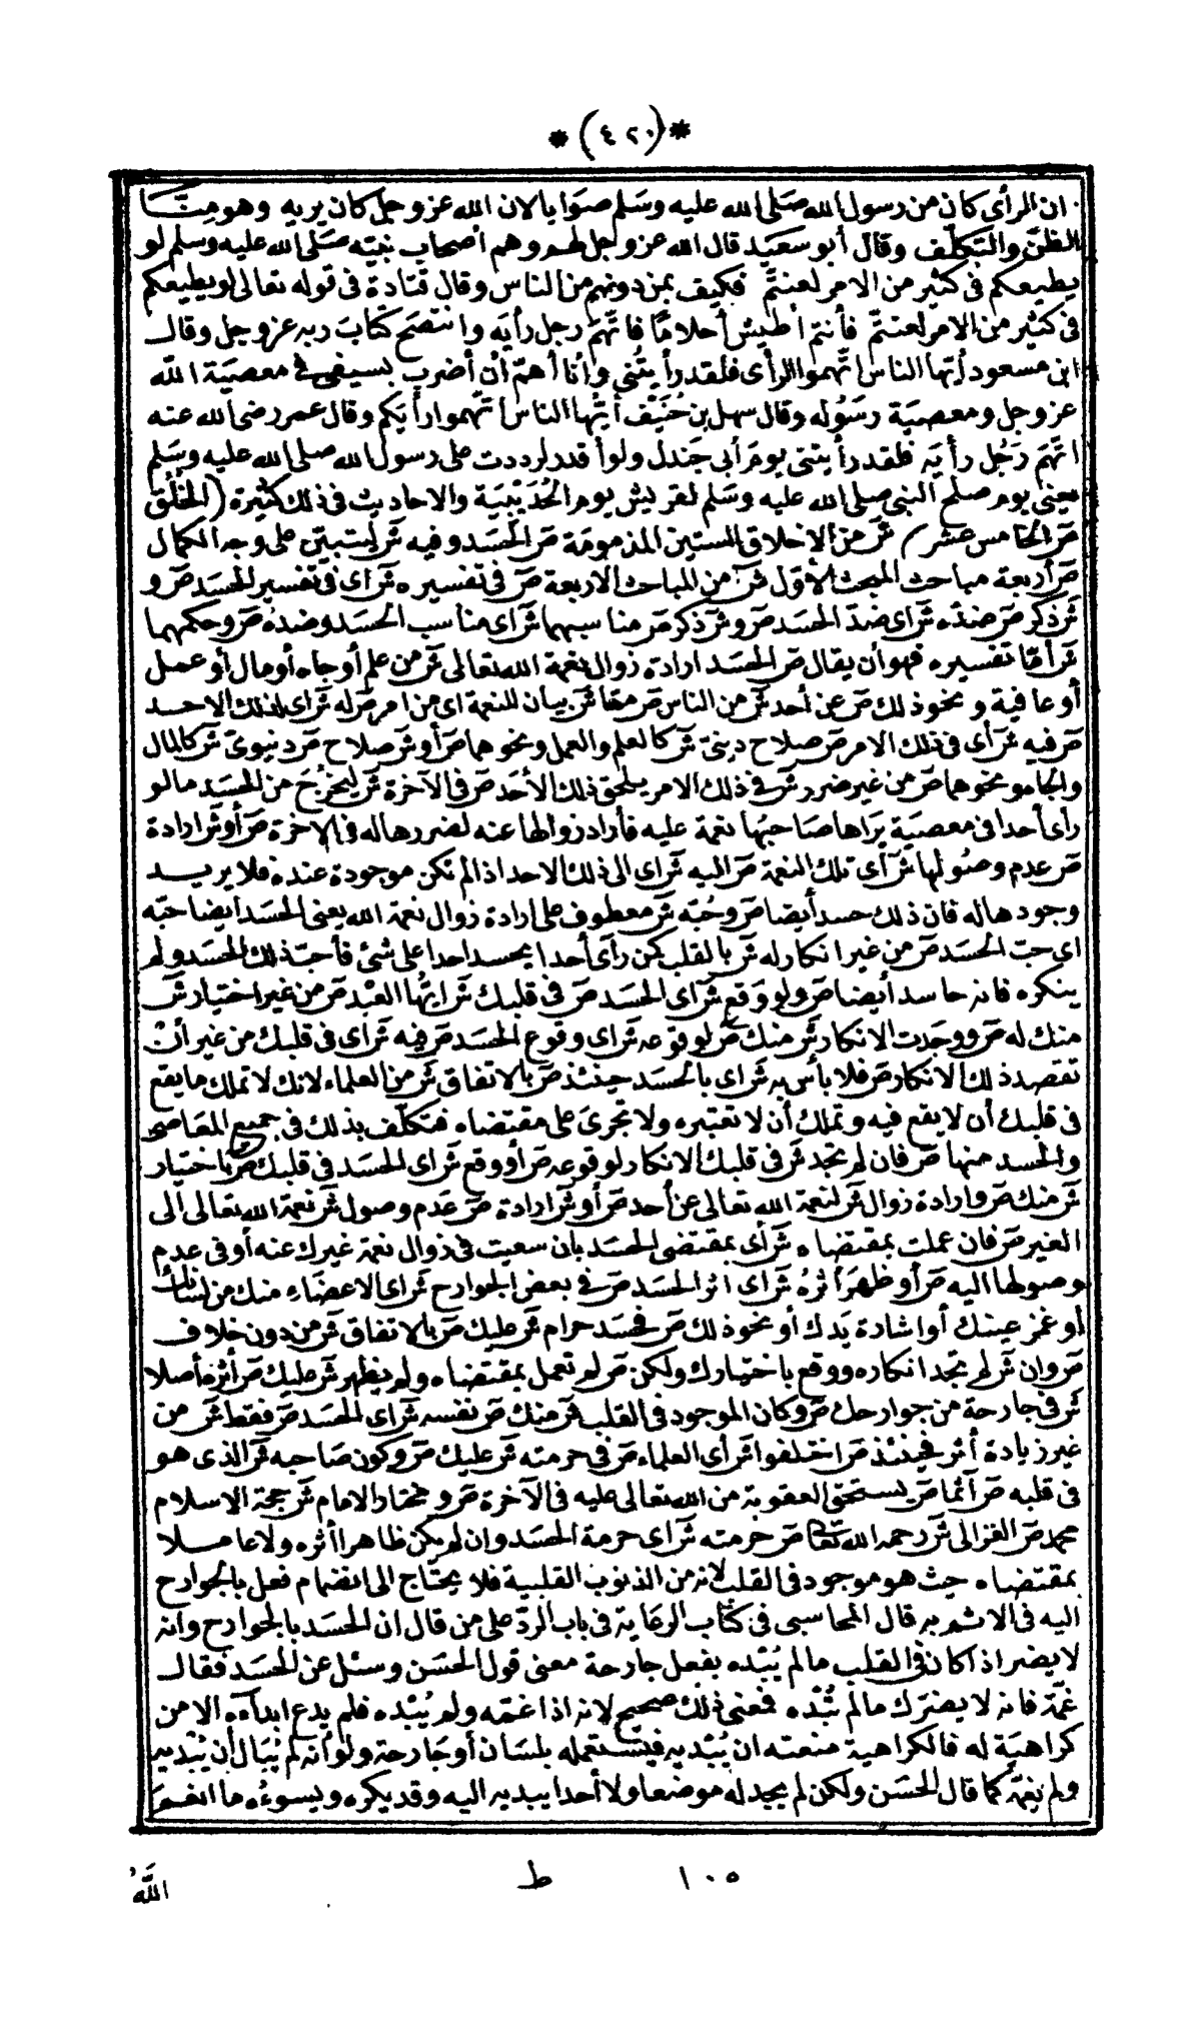 *(٤٢٠)*
ان الرأى كان من رسول الله صَلى الله عليه وسَلم صَوَابا لان الله عز وجل كان يريه وهو مِنَّا
الظنّ والتكلّف وقال أبو سعَيد قال الله عز وجل لهم وهم أصحاب نبيّه صَلى الله عليه وسلم لو
يطيعكم فى كثير من الامر لعنتم فكيف بمن دونهم من الناس وقال قتادة فى قوله تعالى لو يطيعكم
فى كثير من الامر لعنتم فأنتم أطيش أحلامًا فاتهَم رجل رأيه وانتصَح كتابَ ربه عز وجل وقال
ابن مسعود أيّها الناس اتّهموا الرأى فلقد رأيتُنى وأنا أهمّ أن أضرب بسيفى فى معصيَة الله
عز وجل ومعصيَة رسَوله وقال سهل بن حُنَيْف أيّها الناس اتّهموا رأيكم وقال عمر رضى الله عنه
اتهَمَ رَجُل رأيَه فلقد رأيتنى يومَ أبى جَندل ولو أقدر لرددت على رسول الله صلى الله عليه وسَلم
يعنى يوم صلح النبى صلى الله عليه وسَلم لقريش يوم الحُدَيْبيَة والاحاديث فى ذلك كثيرة (الخلُق
صَ الخامس عشر) شَ من الاخلاق الستين المذمومة صَ الحسَد وفيه شَ ليتبيّن على وجه الكمال
صَ أربعة مباحث المبحث الأوّل شَ من المباحث الاربعة صَ فى تفسيره شَ اى فى تفسير الحسَد صَ و
شَ ذكر صَ ضدّه شَ اى ضدّ الحسَد صَ و شَ ذكر صَ مناسبهما شَ اى مناسب الحسَد وضدهُ صَ وحكمهما
شَ أمّا تفسيره فهو أن يقال صَ الحسَد ارادة زوال نعمة الله تعالى شَ من علم أو جاه أو مال أو عمل
أو عافية ونحو ذلك صَ عن أحد شَ من الناس صَ مما شَ بيان للنعمة اى من امر صَ له شَ اى لذلك الاحد
صَ فيه شَ أى فى ذلك الامر صَ صلاح دينىّ شَ كالعلم والعمل ونحوهما صَ أو شَ صلاح صَ دنيوىّ شَ كالمال
والجاه ونحوهما صَ من غير ضرر شَ فى ذلك الامر يلحق ذلك الأحَد صَ فى الآخرة شَ ليخرُجَ من الحسَد ما لو
رأى أحدا فى معصيَة يَراها صَاحبُها نعمة عليه فأراد زوالها عنه لضررها له فى الآخرة صَ أو شَ ارادة
صَ عدم وصُولها شَ أى تلك النعمة صَ اليه شَ اى الى ذلك الاحد اذا لم تكن موجودة عنده فلا يريد
وجودها له فان ذلك حسد أيضا صَ وحُبّه شَ معطوف على ارادة زوال نعمة الله يعنى الحسَد أيضا حبّه
اى حبّ الحسَد صَ من غير انكار له شَ بالقلب كمن رأى أحدا يحسد احدا على شئ فأحبّ ذلك الحسَد ولم
ينكره فانه حاسد أيضا صَ ولو وَقع شَ اى الحسَد صَ فى قلبك شَ ايّها العَبْد صَ من غير اختيار شَ
منك له صَ ووجَدت الانكار شَ منك صَ لوقوعه شَ اى وقوع الحسَد صَ فيه شَ اى فى قلبك من غير أنْ
تقصد ذلك الانكار صَ فلا بأس به شَ اى بالحسَد حينئذ صَ بالاتفاق شَ من العلماء لانك لا تملك ما يقع
فى قلبك أن لا يقع فيه وتملك أن لا تعتبره ولا تجرىَ على مقتضاه فتكلّف بذلك فى جميع المعَاصى
والحسد منها صَ فان لم تجد شَ فى قلبك الانكار لوقوعه صَ أو وقع شَ اى الحسَد فى قلبك صَ باختيار
شَ منك صَ وارادة زوال شَ لنعمة الله تعالى عن أحد صَ أو شَ ارادة صَ عَدم وصول شَ نعمة الله تعالى الى
الغير صَ فان عملت بمقتضاه شَ أى بمقتضى الحسَد بان سعيت فى زوال نعمة غيرك عنه أو فى عدم
وصولها اليه صَ أو ظهَر أثرُه شَ اى اثر الحسَد صَ فى بعض الجوارح شَ اى الاعضَاء منك من لسانك
أو غمز عينك أو اشارة يَدك أو نحو ذلك صَ فحسَد حرام شَ عليك صَ بالاتفاق شَ من دون خلاف
صَ وان شَ لم تجد انكاره ووقع باختيارك ولكن صَ لم تعمل بمقتضاه ولم يظهر شَ عليك صَ أثره أصلا
شَ فى جارحة من جوارحك صَ وكان الموجود فى القلب شَ منك صَ نفسه شَ اى الحسَد صَ فقط شَ من
غير زيادة أثر فحينئذ صَ اختلفوا شَ أى العلماء صَ فى حرمته شَ عليك صَ وكون صَاحبه شَ الذى هو
فى قلبه صَ آثما صَ يستحق العقوبة من الله تعالى عليه فى الآخرة صَ ومختار الامام شَ حجة الاسلام
محمد صَ الغزالى شَ رحمه الله تعالى صَ حرمته شَ اى حرمة الحسَد وان لم يكن ظاهرا أثره ولا عاملا
بمقتضاه حيث هو موجود فى القلب لانه من الذنوب القلبية فلا يحتاج الى انضمام فعل بالجوارح
اليه فى الاثم به قال المحاسبى فى كتاب الرعاية فى باب الردّ على من قال ان الحسَد بالجوارح وانه
لا يضر اذا كان فى القلب ما لم يُبْده بفعل جارحة معنى قول الحسَن وسئل عن الحسَد فقال
غمّة فانه لا يضرّك ما لم تُبْده فمعنى ذلك صحيح لانه اذا غمّه ولم يُبْده فلم يدع ابداءه الا من
كراهيَة له فالكراهية منعته ان يُبْديه فيَستعمله بلسَان أو جَارحة ولو أنه لم يُبَال أن يُبْديه
ولم يغمّه كما قال الحسَن ولكن لم يجد له موضعا ولا أحدا يبديه اليه وقد يكره ويسوءُه ما انعَمَ
١٠٥ ط اللَّهُ